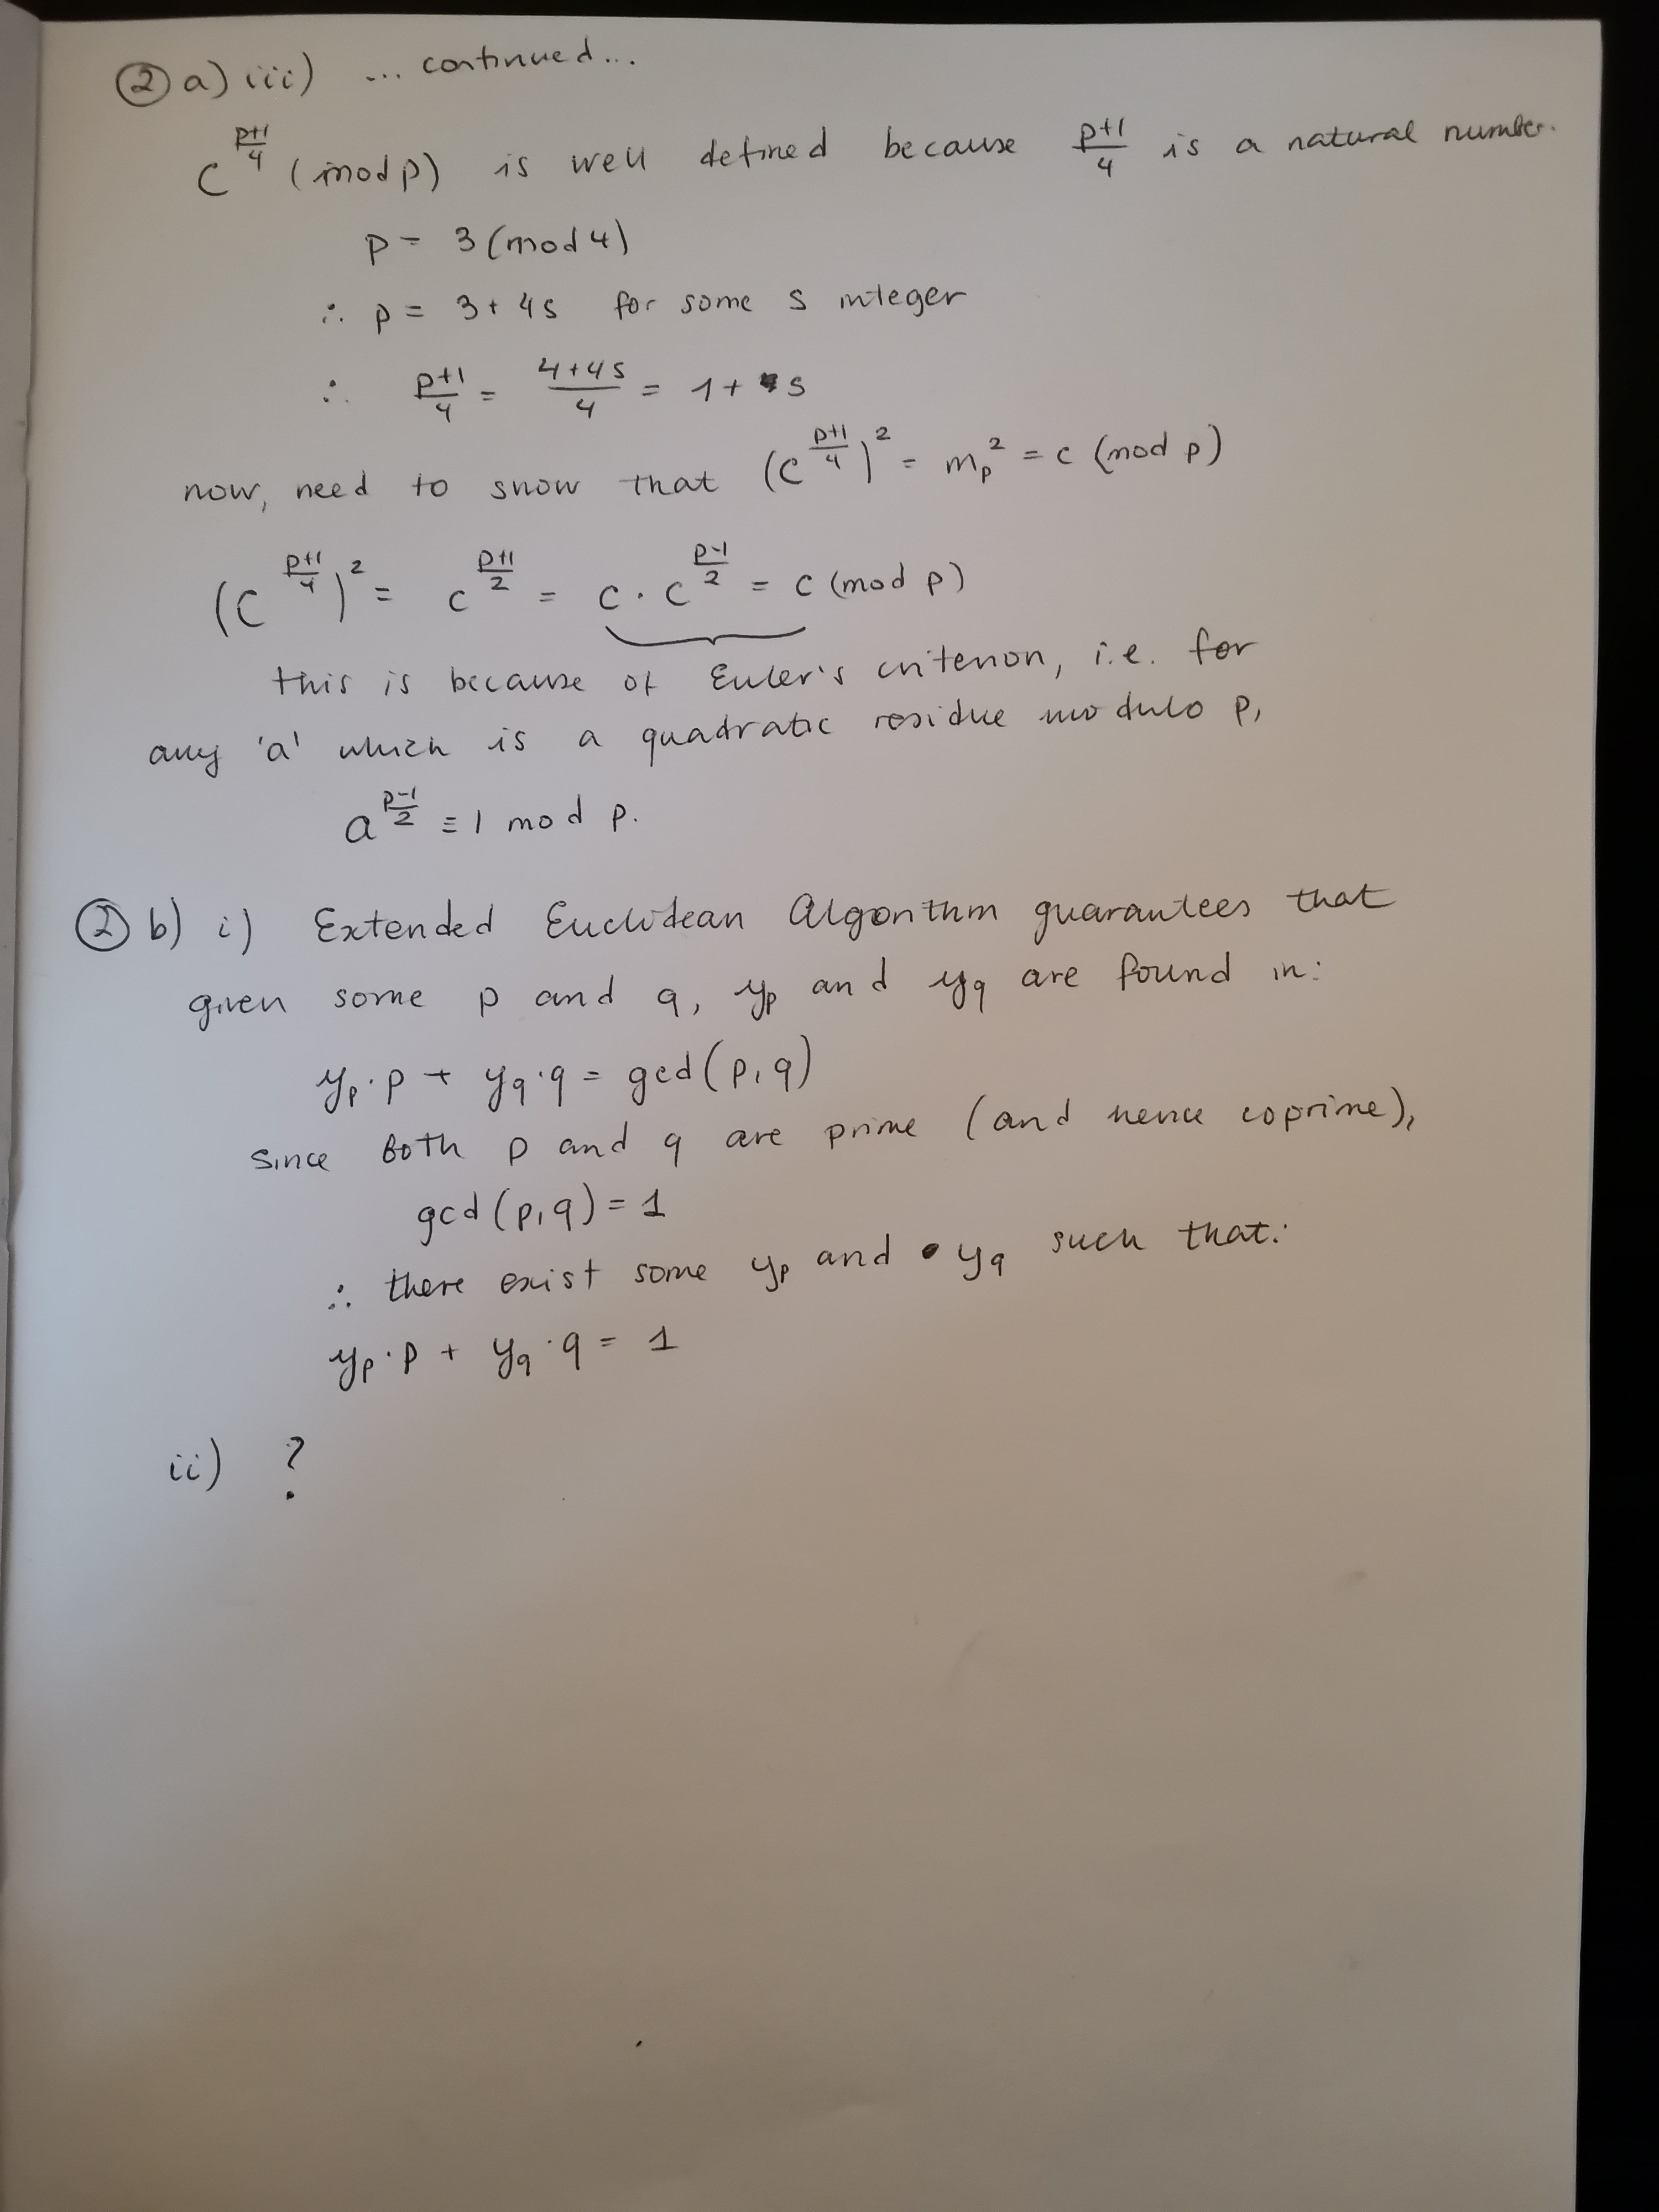 ② a) iii) ... continued...
c^{\frac{p+1}{4}} (mod p) is well defined because \frac{p+1}{4} is a natural number.
p = 3 (mod 4)
∴ p = 3 + 4s for some s integer
∴ \frac{p+1}{4} = \frac{4+4s}{4} = 1 + s
now, need to show that (c^{\frac{p+1}{4}})^2 = m_p^2 = c (mod p)
(c^{\frac{p+1}{4}})^2 = c^{\frac{p+1}{2}} = c · c^{\frac{p-1}{2}} = c (mod p)
this is because of Euler's criterion, i.e. for
any 'a' which is a quadratic residue modulo p,
a^{\frac{p-1}{2}} ≡ 1 mod p.
② b) i) Extended Euclidean Algorithm guarantees that
given some p and q, y_p and y_q are found in:
y_p · p + y_q · q = gcd(p, q)
since both p and q are prime (and hence coprime),
gcd(p, q) = 1
∴ there exist some y_p and y_q such that:
y_p · p + y_q · q = 1
ii) ?